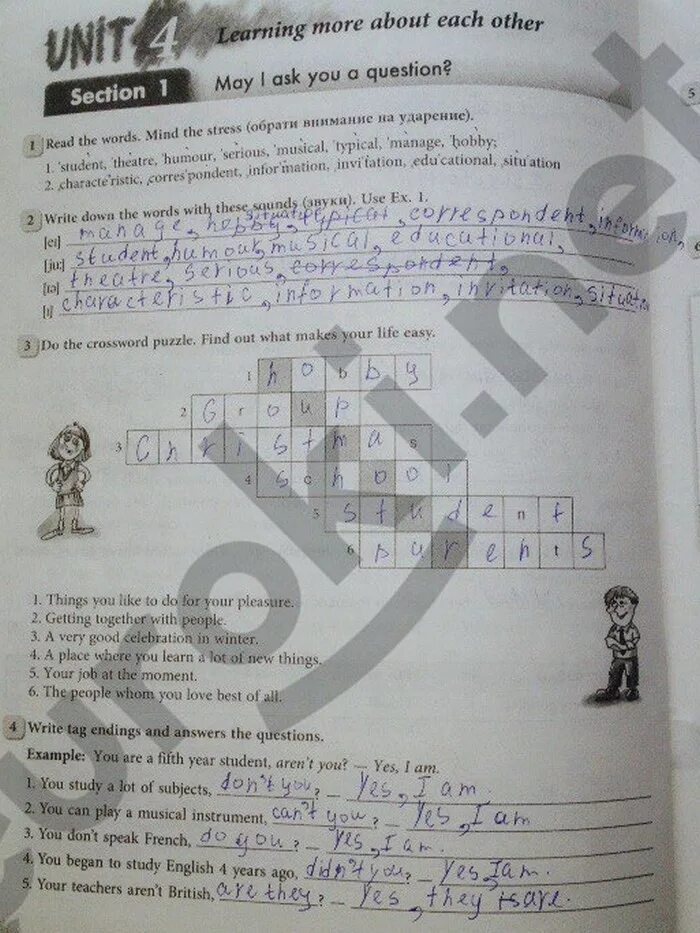 UNIT 4 Learning more about each other
Section 1 May I ask you a question?
5
1 Read the words. Mind the stress (обрати внимание на ударение).
1. 'student, 'theatre, 'humour, 'serious, 'musical, 'typical, 'manage, 'hobby;
2. characte'ristic, corres'pondent, infor'mation, invi'tation, edu'cational, situ'ation
2 Write down the words with these sounds (звуки). Use Ex. 1.
situation
[ei] manage, hobby, typical, correspondent, information,
[ju:] student, humour, musical, educational,
[ıə] theatre, serious, correspondent,
[ı] characteristic, information, invitation, situation
3 Do the crossword puzzle. Find out what makes your life easy.
1 hobby
2 Group
3 Christmas
4 school
5 student
6 parents
1. Things you like to do for your pleasure.
2. Getting together with people.
3. A very good celebration in winter.
4. A place where you learn a lot of new things.
5. Your job at the moment.
6. The people whom you love best of all.
4 Write tag endings and answers the questions.
Example: You are a fifth year student, aren't you? — Yes, I am.
1. You study a lot of subjects, don't you? — Yes, I am.
2. You can play a musical instrument, can't you? — Yes, I am
3. You don't speak French, do you? — Yes, I am.
4. You began to study English 4 years ago, didn't you? — Yes, I am.
5. Your teachers aren't British, are they? — Yes, they is are.
euroki.net